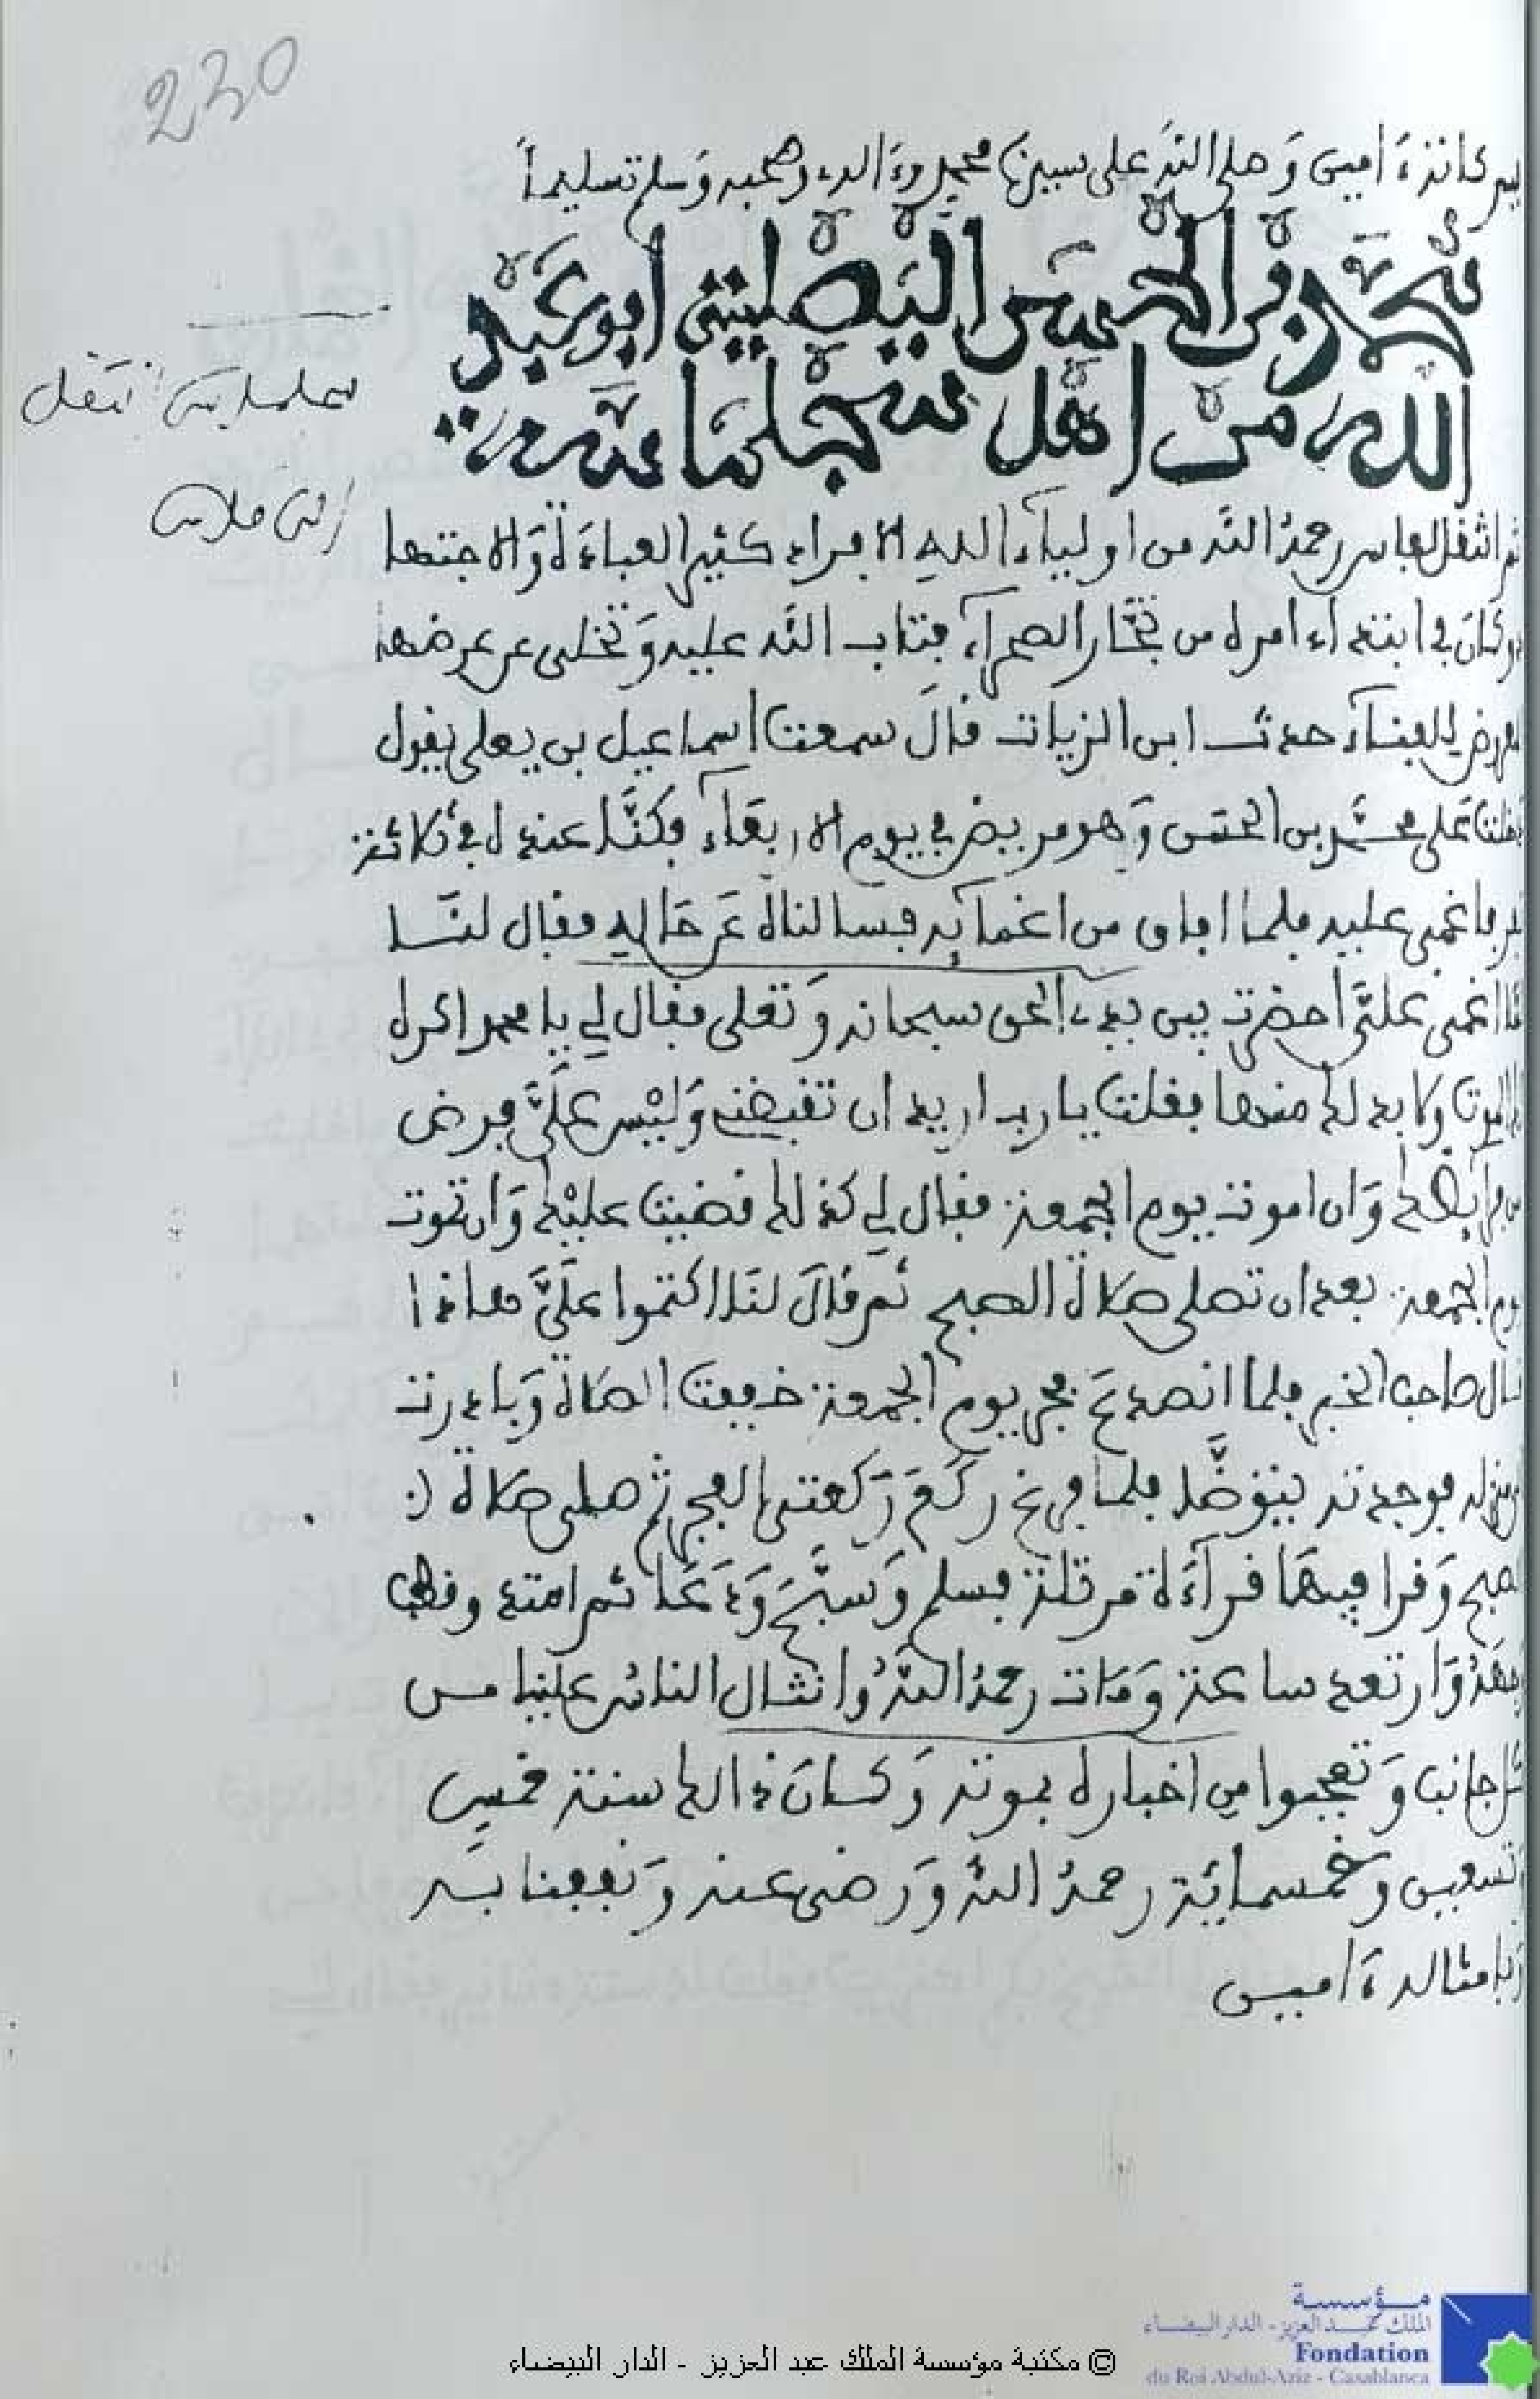 230
ببركاته ءامين وصلى الله على سيدنا محمد وءاله وصحبه وسلم تسليماً
محمد بن الحسن اليصليتنى أبو عبد
الله من أهل سجلماسة
سجلماسي انتقل
الى فاس
ثم انتقل لفاس رحمه الله من اولياء الله الافراد كثير العبادة والاجتهاد
وكان في ابتداء امره من تجار الصحراء فتاب الله عليه وتخلى عن عرضها
المعرض للفناء حدث ابن الزيات قال سمعت اسماعيل بن يعلى يقول
دخلت على محمد بن الحسن وهو مريض في يوم الاربعاء فكنا عنده في ثلاثة
نفر فاغمي عليه فلما افاق من اغمائه فسالناه عن حاله فقال لنا
لما اغمي علي احضرت بين يدي الحق سبحانه وتعلى فقال لي يا محمد اكره
لك الموت ولا بد لك منها فقلت يا رب اريد ان تقبضني وليس علي فرض
من فرائضك وان اموت يوم الجمعة فقال لي كذلك قضيت عليك وان تموت
يوم الجمعة بعد ان تصلي صلاة الصبح ثم قال لنا اكتموا علي هاذا
قال صاحب الخبر فلما انصدع فجر يوم الجمعة خففت الصلاة وبادرت
منزله فوجدته يتوضا فلما فرغ ركع ركعتي الفجر ثم صلى صلاة ا
لصبح وقرا فيها قراءة مرتلة فسلم وسبح ودعا ثم امتد وقلب
وارتعد ساعة ومات رحمه الله وانثال الناس علينا من
كل جانب وتعجبوا من اخباره بموته وكان ذالك سنة خمس
وتسعين وخمسمائة رحمه الله ورضي عنه ونفعنا به
وبامثاله ءامين
مؤسسة
الملك عبد العزيز - الدار البيضاء
Fondation
du Roi Abdul-Aziz - Casablanca
© مكتبة مؤسسة الملك عبد العزيز - الدار البيضاء